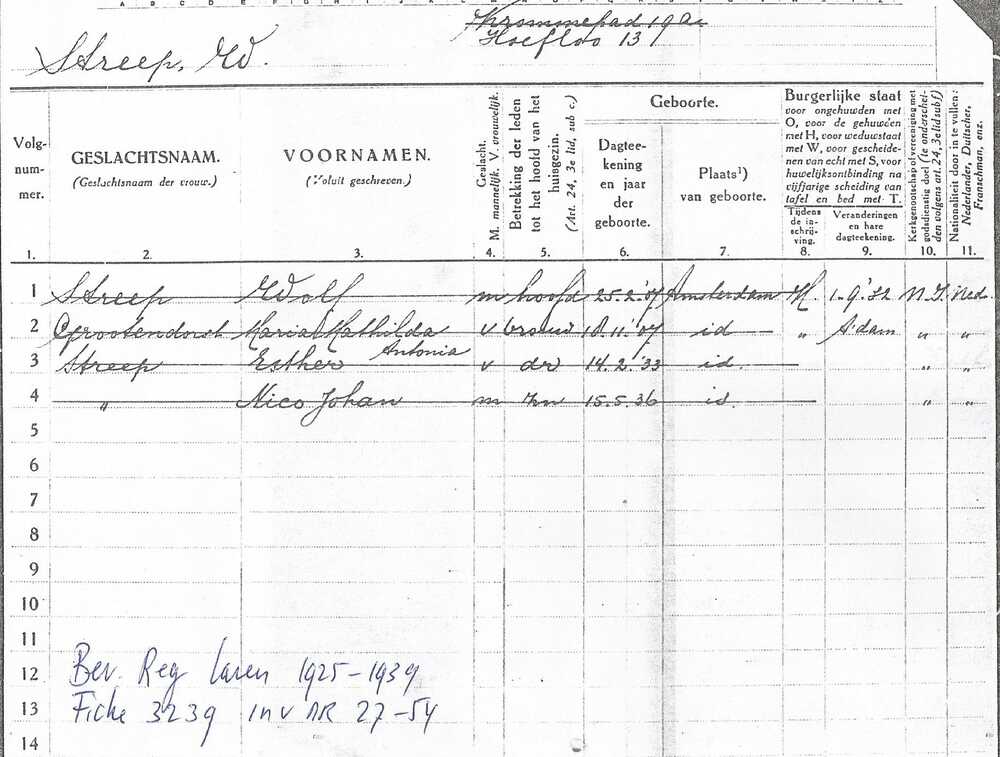 Krommepad 19a
Hoefloo 13
Streep, W.
Volg-
num-
mer.
1.
GESLACHTSNAAM.
(Geslachtsnaam der vrouw.)
2.
VOORNAMEN.
(Voluit geschreven.)
3.
Geslacht.
M. mannelijk. V. vrouwelijk.
4.
Betrekking der leden
tot het hoofd van het
huisgezin.
(Art. 24, 3e lid, sub c.)
5.
Geboorte.
Dagtee-
kening
en jaar
der
geboorte.
6.
Plaats¹)
van geboorte.
7.
Burgerlijke staat
voor ongehuwden met
O, voor de gehuwden
met H, voor weduwstaat
met W, voor gescheide-
nen van echt met S, voor
huwelijksontbinding na
vijfjarige scheiding van
tafel en bed met T.
Tijdens
de in-
schrij-
ving.
8.
Veranderingen
en hare
dagteekening.
9.
Kerkgenootschap of vereeniging met
godsdienstig doel (1e onderschei-
den volgens art. 24, 3e lid sub f)
10.
Nationaliteit door in te vullen:
Nederlander, Duitscher,
Franschman, enz.
11.
1 Streep Wolf m hoofd 25.2.'07 Amsterdam H. 1.9.'32 N.I. Ned.
2 Grootendorst Maria Mathilda v vrouw 18.11.'07 id „ A'dam „ „
Antonia
3 Streep Esther v dr 14.2.'33 id. „ „
4 „ Nico Johan m zn 15.5.'36 id. „ „
5
6
7
8
9
10
11
12 Bev. Reg Laren 1925-1939
13 Fiche 3239 inv nr 27-54
14